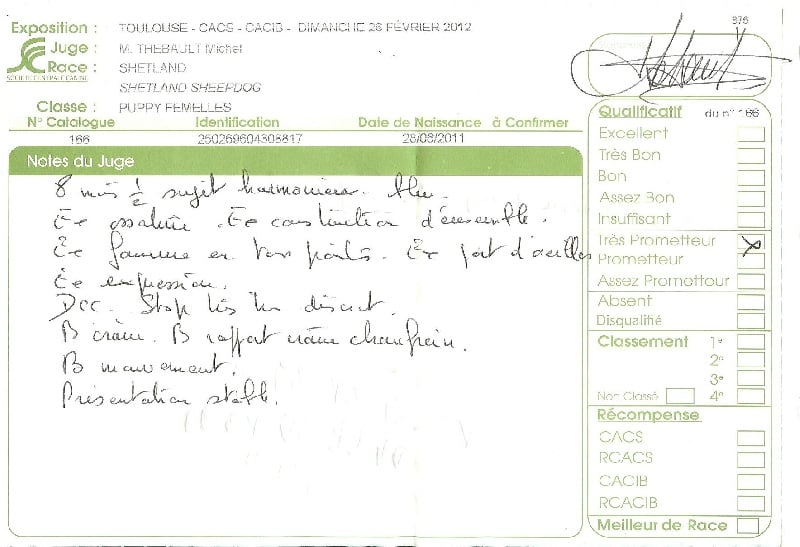 Exposition : TOULOUSE - CACS - CACIB - DIMANCHE 26 FÉVRIER 2012
Juge : M. THEBAULT Michel
Race : SHETLAND
SOCIÉTÉ CENTRALE CANINE
SHETLAND SHEEPDOG
Classe : PUPPY FEMELLES
N° Catalogue Identification Date de Naissance à Confirmer
166 250269604308817 28/06/2011
Notes du Juge
8 mois ½ sujet harmonieux.
Ex ossature. Ex construction d'ensemble.
Ex femme en tous points. Ex port d'oreilles
Ex expression.
Dcc. Stop très discret.
B crâne. B rapport crâne chanfrein.
B mouvement.
Présentation stable.
976
Qualificatif du n° 166
Excellent
Très Bon
Bon
Assez Bon
Insuffisant
Très Prometteur X
Prometteur
Assez Prometteur
Absent
Disqualifié
Classement 1e
2e
3e
Non Classé 4e
Récompense
CACS
RCACS
CACIB
RCACIB
Meilleur de Race